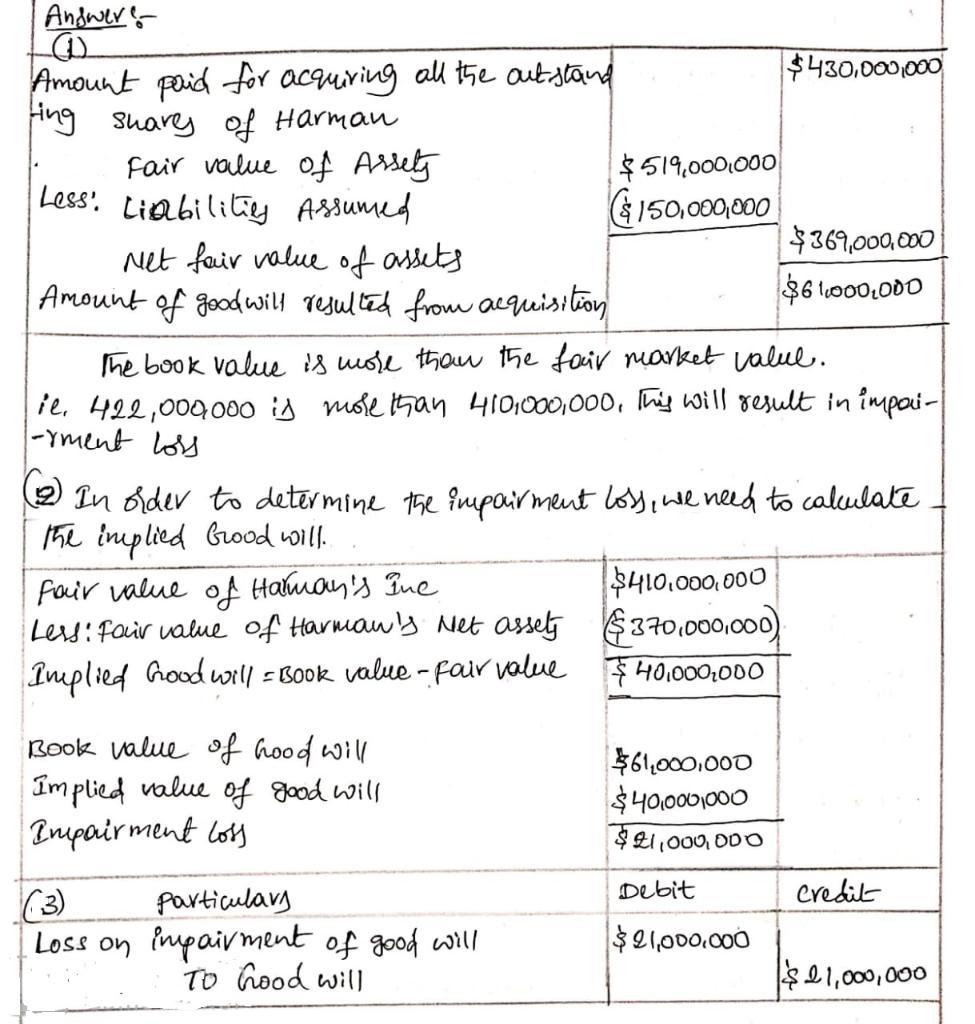 Answer :-
(1)
Amount paid for acquiring all the outstand $430,000,000
-ing shares of Harman
Fair value of Assets $519,000,000
Less: Liabilities Assumed ($150,000,000
Net fair value of assets $369,000,000
Amount of goodwill resulted from acquisition $61,000,000
The book value is more than the fair market value.
ie, 422,000,000 is more than 410,000,000. This will result in impai-
-rment loss
(2) In order to determine the impairment loss, we need to calculate
the implied Good will.
Fair value of Harman's Inc $410,000,000
Less: Fair value of Harman's Net assets ($370,000,000)
Implied Good will = Book value - Fair value $40,000,000
Book value of Good will $61,000,000
Implied value of good will $40,000,000
Impairment loss $21,000,000
(3) Particulars Debit Credit
Loss on impairment of good will $21,000,000
To Good will $21,000,000